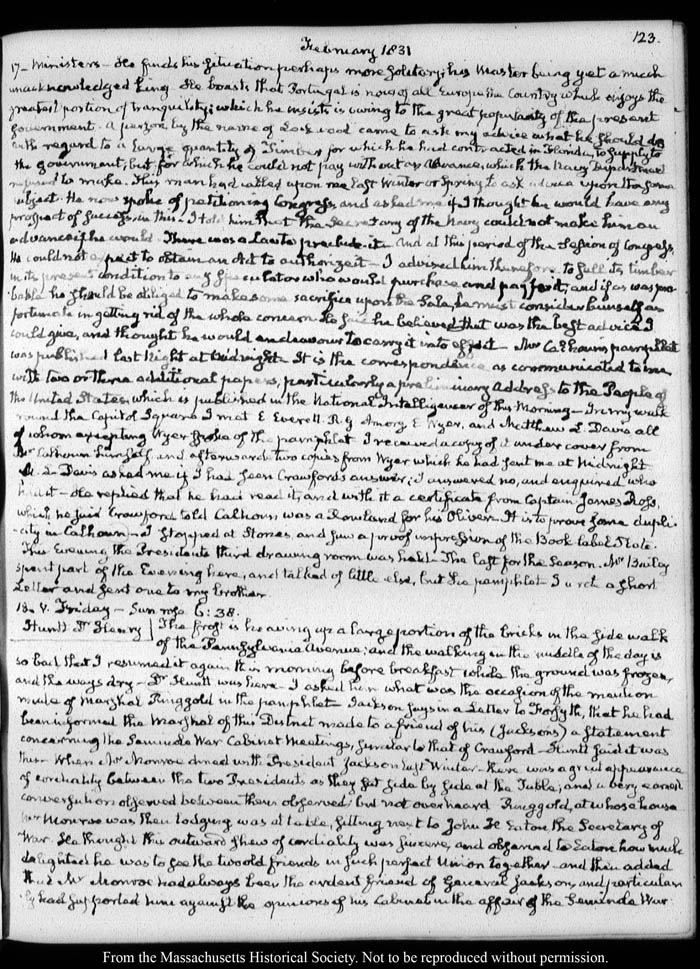 123.
February 1831
17— Ministers— He finds his situation perhaps more solitary; his Master being yet a much
unacknowledged King. He boasts that Portugal is now of all Europe the Country which enjoys the
greatest portion of tranquility; which he insists is owing to the great popularity of the present
government. A person by the name of Lockwood came to ask my advice what he should do
with regard to a large quantity of Timber for which he had contracted in Florida, to supply to
the government; but for which he could not pay without an advance, which the Navy Department
refused to make. This man had called upon me last Winter or Spring to ask advice upon the same
subject. He now spoke of petitioning Congress, and asked me if I thought he would have any
prospect of success in this— I told him that the Secretary of the Navy could not make him an
advance if he would. There was a Law to preclude it. And at this period of the Session of Congress
he could not expect to obtain an Act to authorize it— I advised him therefore to sell its timber
in its present condition to any speculator who would purchase and pay for it, and if as was pro-
bable he should be obliged to make some sacrifice upon the Sale, he must consider himself as
fortunate in getting rid of the whole concern. He said he believed that was the best advice I
could give, and thought he would endeavour to carry it into effect— Mr Calhoun's pamphlet
was published last Night at Midnight. It is the correspondence as communicated to me
with two or three additional papers, particularly a preliminary Address to the People of
the United States, which is published in the National Intelligencer of this Morning— In my walk
round the Capitol Square I met E Everett. R. G Amory E Wyer, and Matthew L Davis all
of whom excepting Wyer spoke of the pamphlet. I received a copy of it under cover from
Mr Calhoun himself and afterwards two copies from Wyer which he had sent me at Midnight
M. L Davis asked me if I had seen Crawford's answer; I answered no, and enquired who
had it— He replied that he had read it, and with it a certificate from Captain James Ross,
which he said Crawford told Calhoun was a Rowland for his Oliver— It is to prove some dupli-
-city in Calhoun— I stopped at Stones, and saw a proof impression of the Book label Plate.
This Evening the Presidents third drawing room was held— The last for the Season. Mr Bailey
spent part of the Evening here, and talked of little else, but the pamphlet I wrote a short
Letter and sent one to my brother.
18. V. Friday— Sun rose 6:38.
Huntt Dr Henry | The frost is heaving up a large portion of the bricks in the side walk
of the Pennsylvania Avenue; and the walking in the middle of the day is
so bad that I resumed it again this morning before breakfast while the ground was frozen,
and the ways dry— Dr Huntt was here— I asked him what was the occasion of the mention
made of Marshal Ringgold in the pamphlet Jackson says in a Letter to Forsyth, that he had
been informed the Marshal of this District made to a friend of his (Jacksons) a statement
concerning the Seminole War Cabinet Meetings, similar to that of Crawford— Huntt said it was
thus— When Mr Monroe dined with President Jackson last Winter there was a great appearance
of cordiality between the two Presidents as they sat side by side at the Table, and a very earnest
conversation observed between them observed but not overheard Ringgold, at whose house
Mr Monroe was then lodging was at table, sitting next to John H Eaton the Secretary of
War. He thought this outward shew of cordiality was sincere, and observed to Eaton how much
delighted he was to see the two old friends in such perfect Union together and then added
that Mr Monroe had always been the ardent friend of General Jackson, and particular
ly had supported him against the opinions of his Cabinet in the affair of the Seminole War
From the Massachusetts Historical Society. Not to be reproduced without permission.